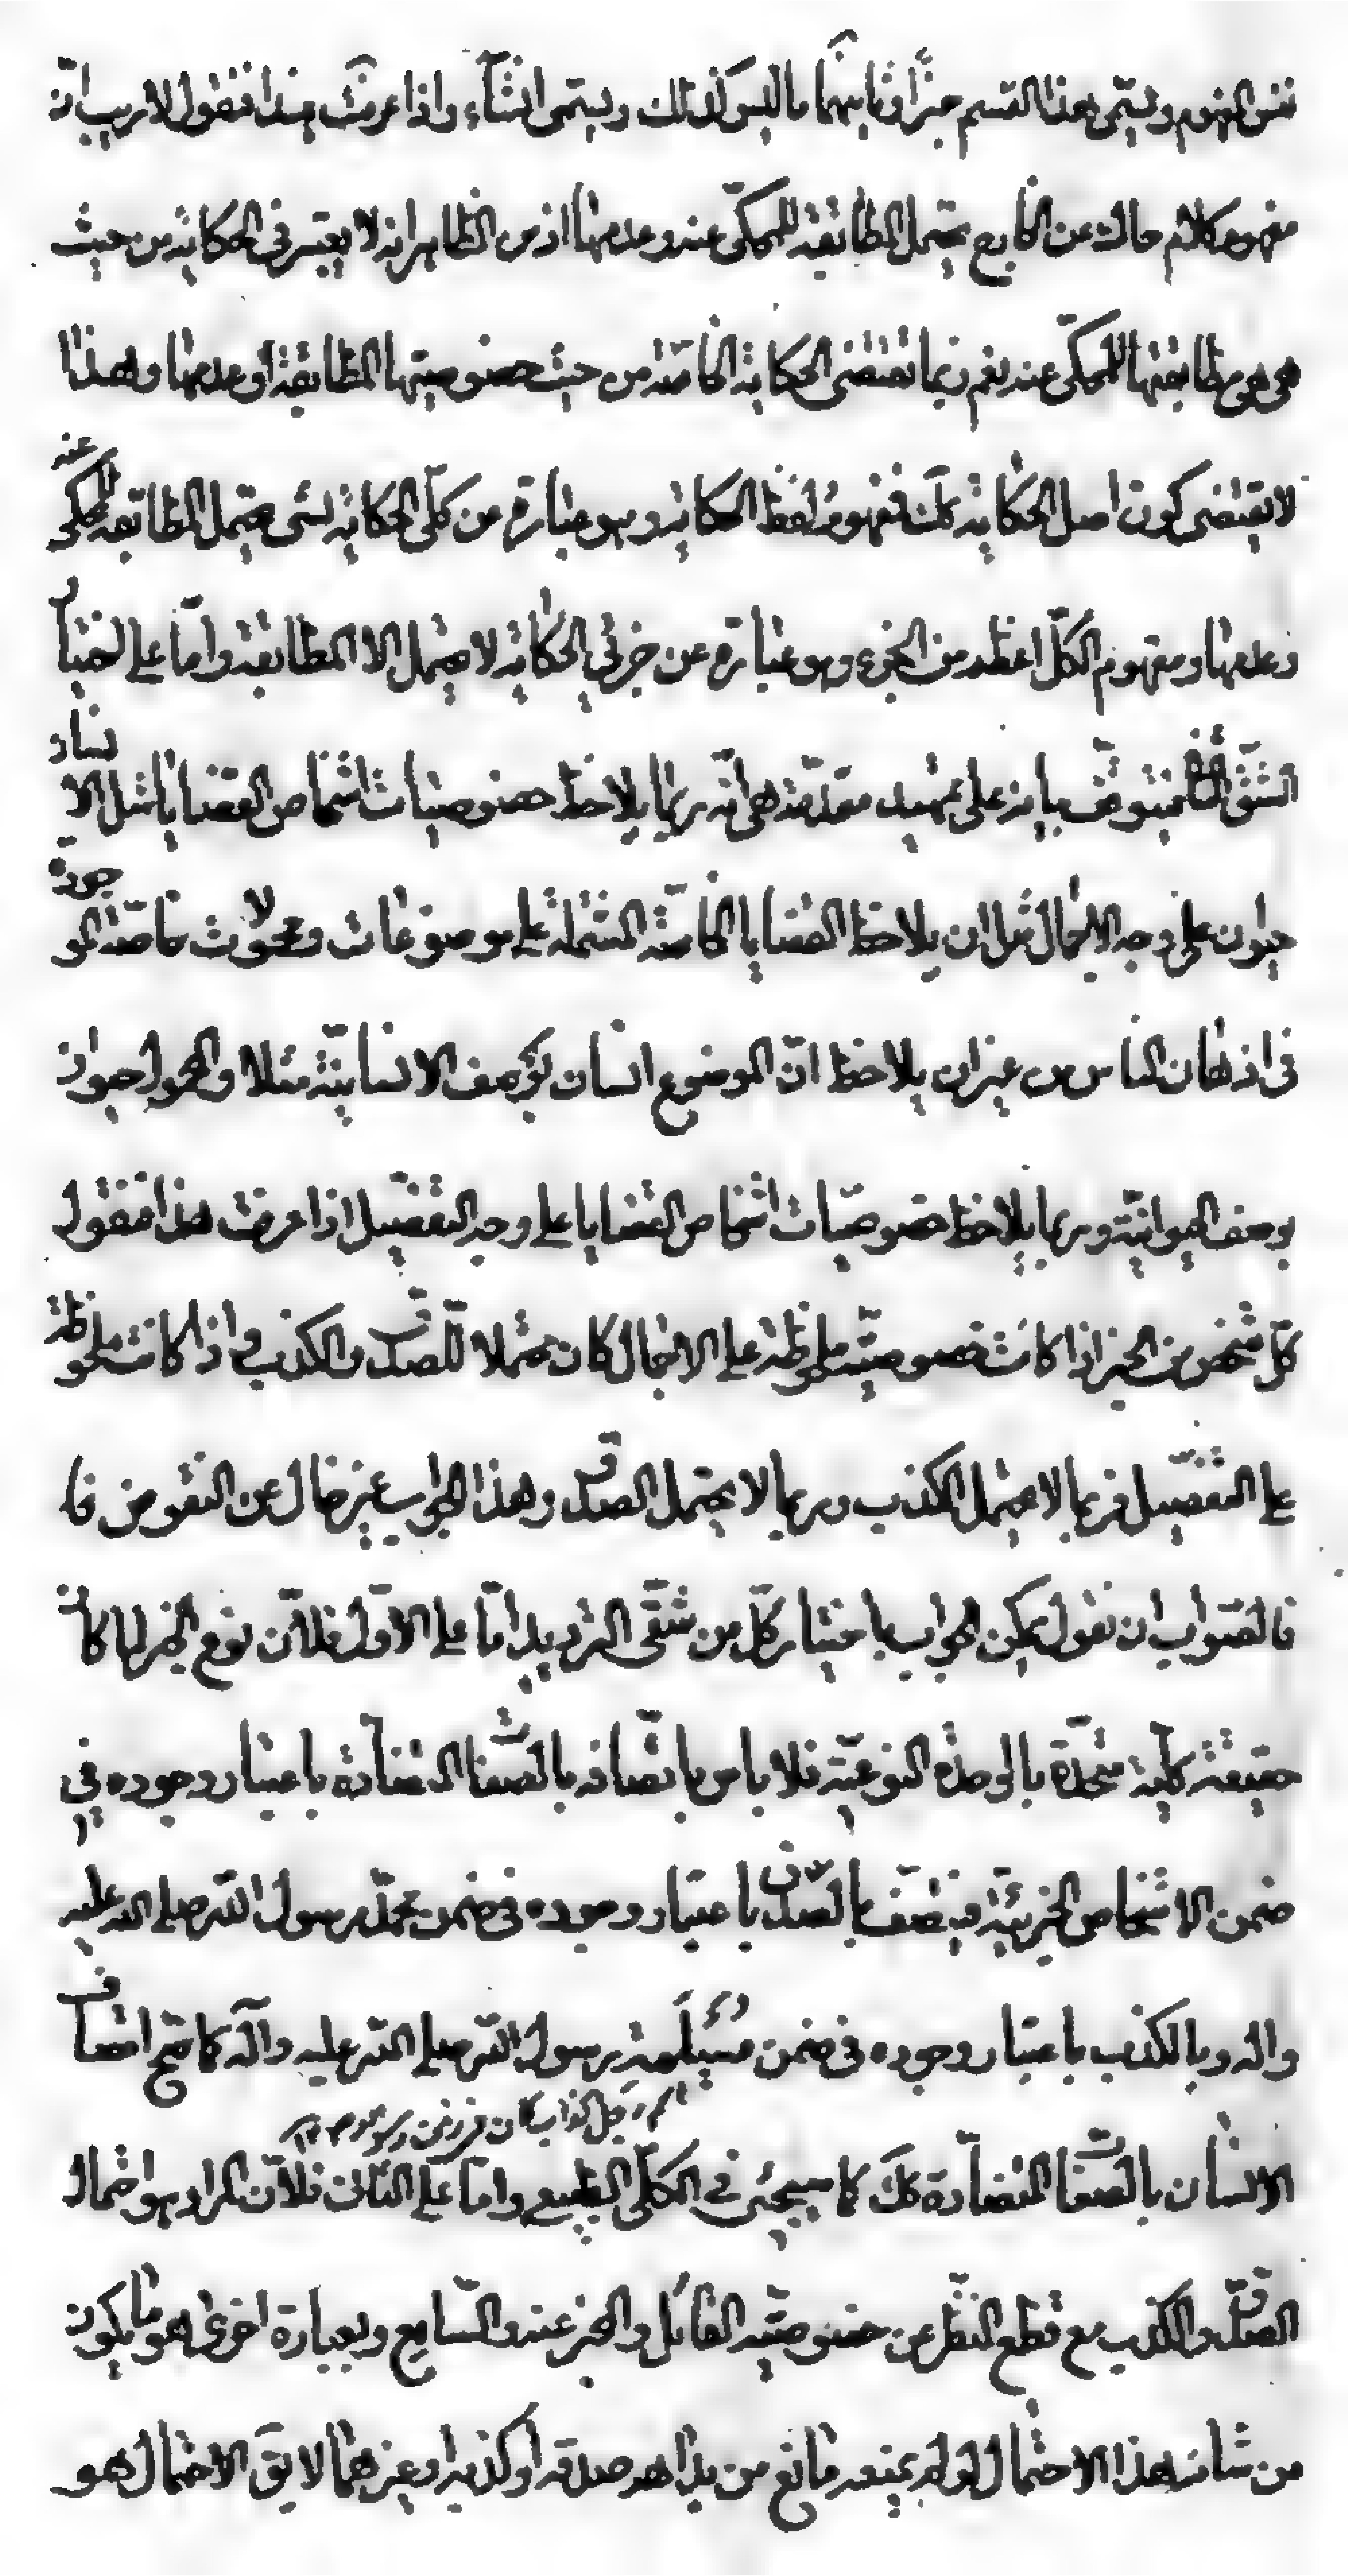 نفس المفهوم ويسمّى هذا القسم خبرًا وثانيهما ما ليس كذلك ويسمى انشاء واذا عرفت هذا فنقول لا ريب انّ
مفهوم كلام حاك عن الخارج يحتمل المطابقة للمحكّى عنه وعدمها اذ من الظاهر انه لا يعتبر فى الحكاية من حيث
هى هى مطابقتها للمحكّى عنه نعم ربما تقتضى الحكاية الخاصّة من حيث خصوصيتها المطابقة او عدمها وهذا
لا يقتضى كون اصل الحكاية كك فمفهوم لفظ الحكاية وهو عبارة عن كلّى الحكاية لشى يحتمل المطابقة للمحكّى عنه
وعدمها ومفهوم الكلّ اعظم من الجزء وهو عبارة عن جزئي الحكاية لا يحتمل الا المطابقة وامّا على اختيار
الشقّ الثانى فيتوقف بيانه على تمهيد مقدّمة هى انّه ربما يلاحظ خصوصيات اشخاص القضايا مثل الانسان
حيوان على وجه الاجمال مثل ان يلاحظ القضايا الخاصّة المشتملة على موضوعات ومحمولات خاصّة الموجودة
فى اذهان الناس من غير ان يلاحظ انّ الموضوع انسان بوصف الانسانيّة مثلا والمحمول حيوان
بوصف الحيوانيّة وربما يلاحظ خصوصيّات اشخاص القضايا على وجه التفصيل اذا عرفت هذا فنقول
كلّ شخص من الخبر اذا كانت خصوصيّته ملحوظة على الاجمال كان محتملا للصدق والكذب واذا كانت ملحوظة
على التفصيل فربما لا يحتمل الكذب وربما لا يحتمل الصدق وهذا الجواب غير خال عن النقوض فا
فالصّواب ان نقول يمكن الجواب باختيار كلّ من شقّى الترديد امّا على الاوّل فلانّ نوع الخبر لما كان
حقيقة كليّة متّحدة بالوحدة النوعيّة فلا باس باتّصافه بالصّفات المتضادّة باعتبار وجوده في
ضمن الاشخاص الجزئيّة فيتّصف بالصّدق باعتبار وجوده فى ضمن محمّد رسول اللّه صلى اللّه عليه
واله وبالكذب باعتبار وجوده فى ضمن مُسَيْلَمة رسول اللّه صلى اللّه عليه وآله كما صحّ اتّصاف
اسم رجل كذاب كان فى زمن
الانسان بالصّفات المتضادّة كك كما سيجئ في الكلّي الطبيعي وامّا على الثانى فلانّ المراد هو احتمال
الصّدق والكذب مع قطع النّظر عن خصوصيّة القائل والمخبر عنه والسّامع وبعبارة اخرى هو ما يكون
من شانه هذا الاحتمال لو لم يمنعه مانع من بداهة صدقه او كذبه او غيرهما لا يق الاحتمال هو